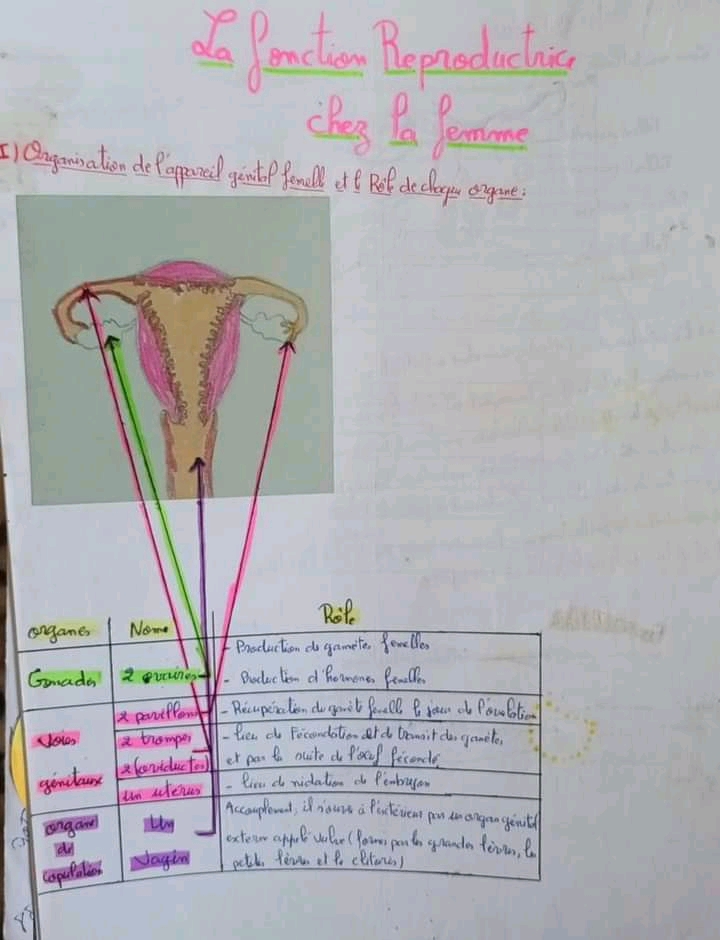 La fonction Reproductrice
chez la femme
I) Organisation de l'appareil génital femell et l Rôle de chaque organe:
organes Noms Rôle
Gonades 2 ovaires - Production de gamètes femelles
- Production d'hormones femelles
Voies génitaux 2 pavillons - Récupération du gamète femelle le jour de l'ovulation
2 trompes - lieu de Fécondation et de transit des gamètes
2 (oviductes) et par la suite de l'oeuf fécondé
un utérus - lieu de nidation de l'embryon
organe de copulation Un Vagin Accouplement, il s'ouvre à l'extérieur par un organe génital
externe appelé vulve (formé par les grandes lèvres, les
petites lèvres et le clitoris)